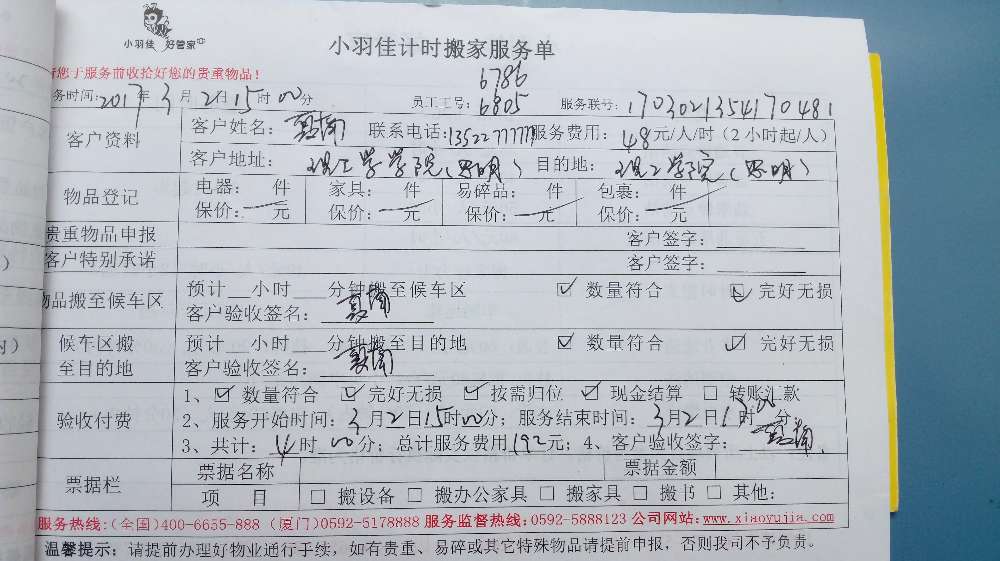 小羽佳 好管家
小羽佳计时搬家服务单
您于服务前收拾好您的贵重物品！
6786
务时间：2017年3月2日15时00分 员工工号：6805 服务联号：1703021354170481
客户资料 客户姓名： 联系电话：13522777777 服务费用：48元/人/时（2小时起/人）
客户地址：理工学学院（思明） 目的地：理工学院（思明）
物品登记 电器： 件 家具： 件 易碎品： 件 包裹： 件
保价：— 元 保价：— 元 保价：— 元 保价：— 元
贵重物品申报 客户签字：
客户特别承诺 客户签字：
物品搬至候车区 预计__小时__分钟搬至候车区 ☑ 数量符合 ☑ 完好无损
客户验收签名：
候车区搬 预计__小时__分钟搬至目的地 ☑ 数量符合 ☑ 完好无损
至目的地 客户验收签名：
验收付费 1、☑ 数量符合 ☑ 完好无损 ☑ 按需归位 ☑ 现金结算 □ 转账汇款
2、服务开始时间：3月2日15时00分；服务结束时间：3月2日1 时00分；
3、共计：4时00分；总计服务费用192元；4、客户验收签字：
票据栏 票据名称 票据金额
项 目 □ 搬设备 □ 搬办公家具 □ 搬家具 □ 搬书 □ 其他：
服务热线：(全国)400-6655-888 (厦门)0592-5178888 服务监督热线：0592-5888123 公司网站：www.xiaoyujia.com
温馨提示：请提前办理好物业通行手续，如有贵重、易碎或其它特殊物品请提前申报，否则我司不予负责。